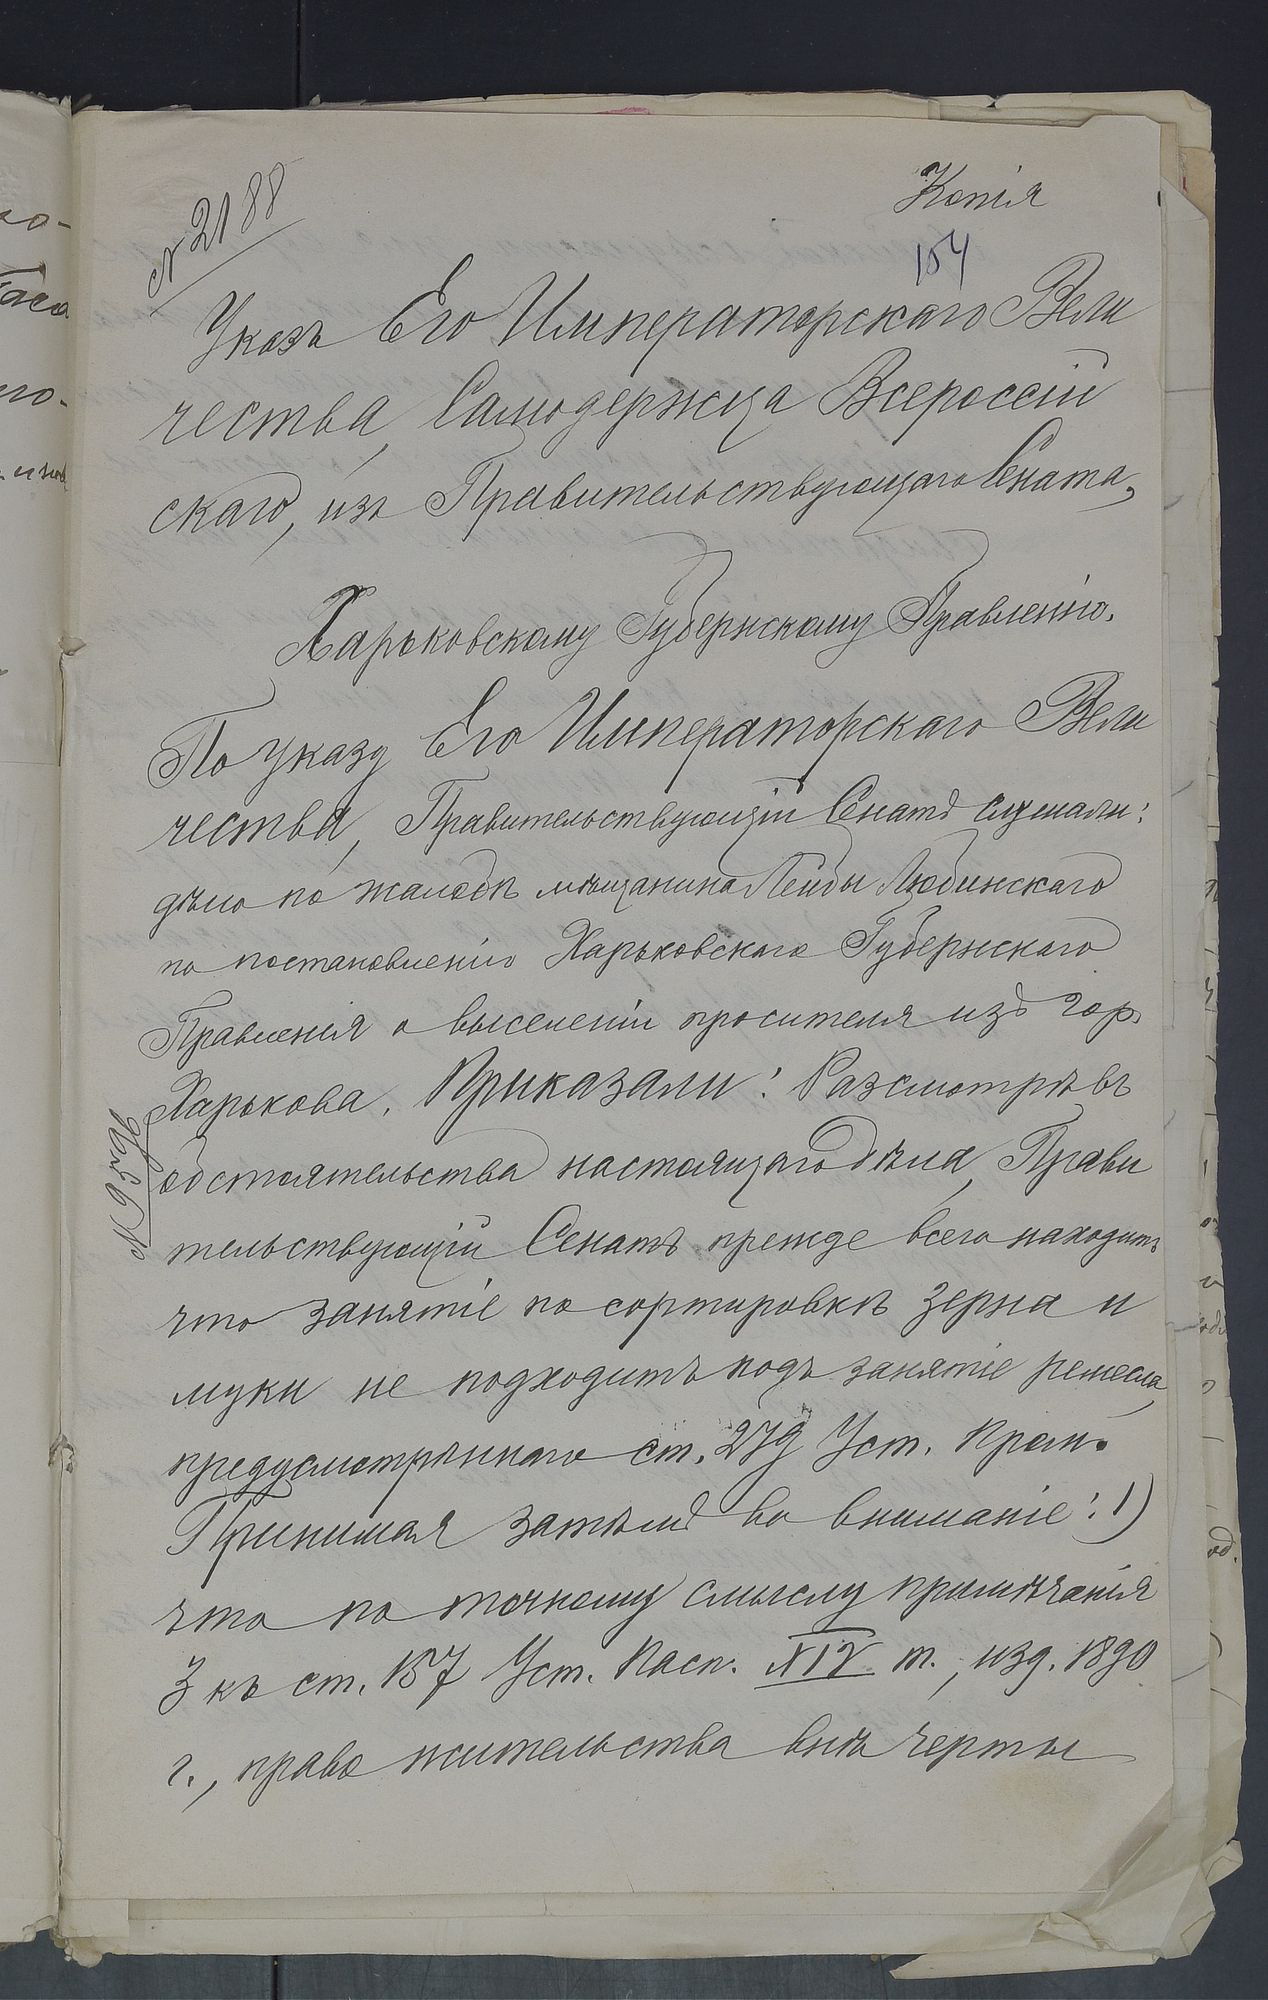 Копія
№ 2188
154
Указъ Его Императорскаго Вели
чества, Самодержца Всероссій
скаго, изъ Правительствующаго Сената,
Харьковскому Губернскому Правленію.
По указу Его Императорскаго Вели
чества, Правительствующій Сенатъ слушали:
дѣло по жалобѣ мѣщанина Лейбы Любинскаго
по постановленію Харьковскаго Губернскаго
Правленія о выселеніи просителя изъ гор.
Харькова. Приказали: Разсмотрѣвъ
обстоятельства настоящаго дѣла, Прави
тельствующій Сенатъ прежде всего находитъ
что занятіе по сортировкѣ зерна и
муки не подходитъ подъ занятіе ремесла,
предусмотрѣннаго ст. 279 Уст. Пром.
Принимая затѣмъ во вниманіе: 1)
что по точному смыслу примѣчанія
3 къ ст. 157 Уст. Пасп. XIV т., изд. 1890
г., право жительства внѣ черты